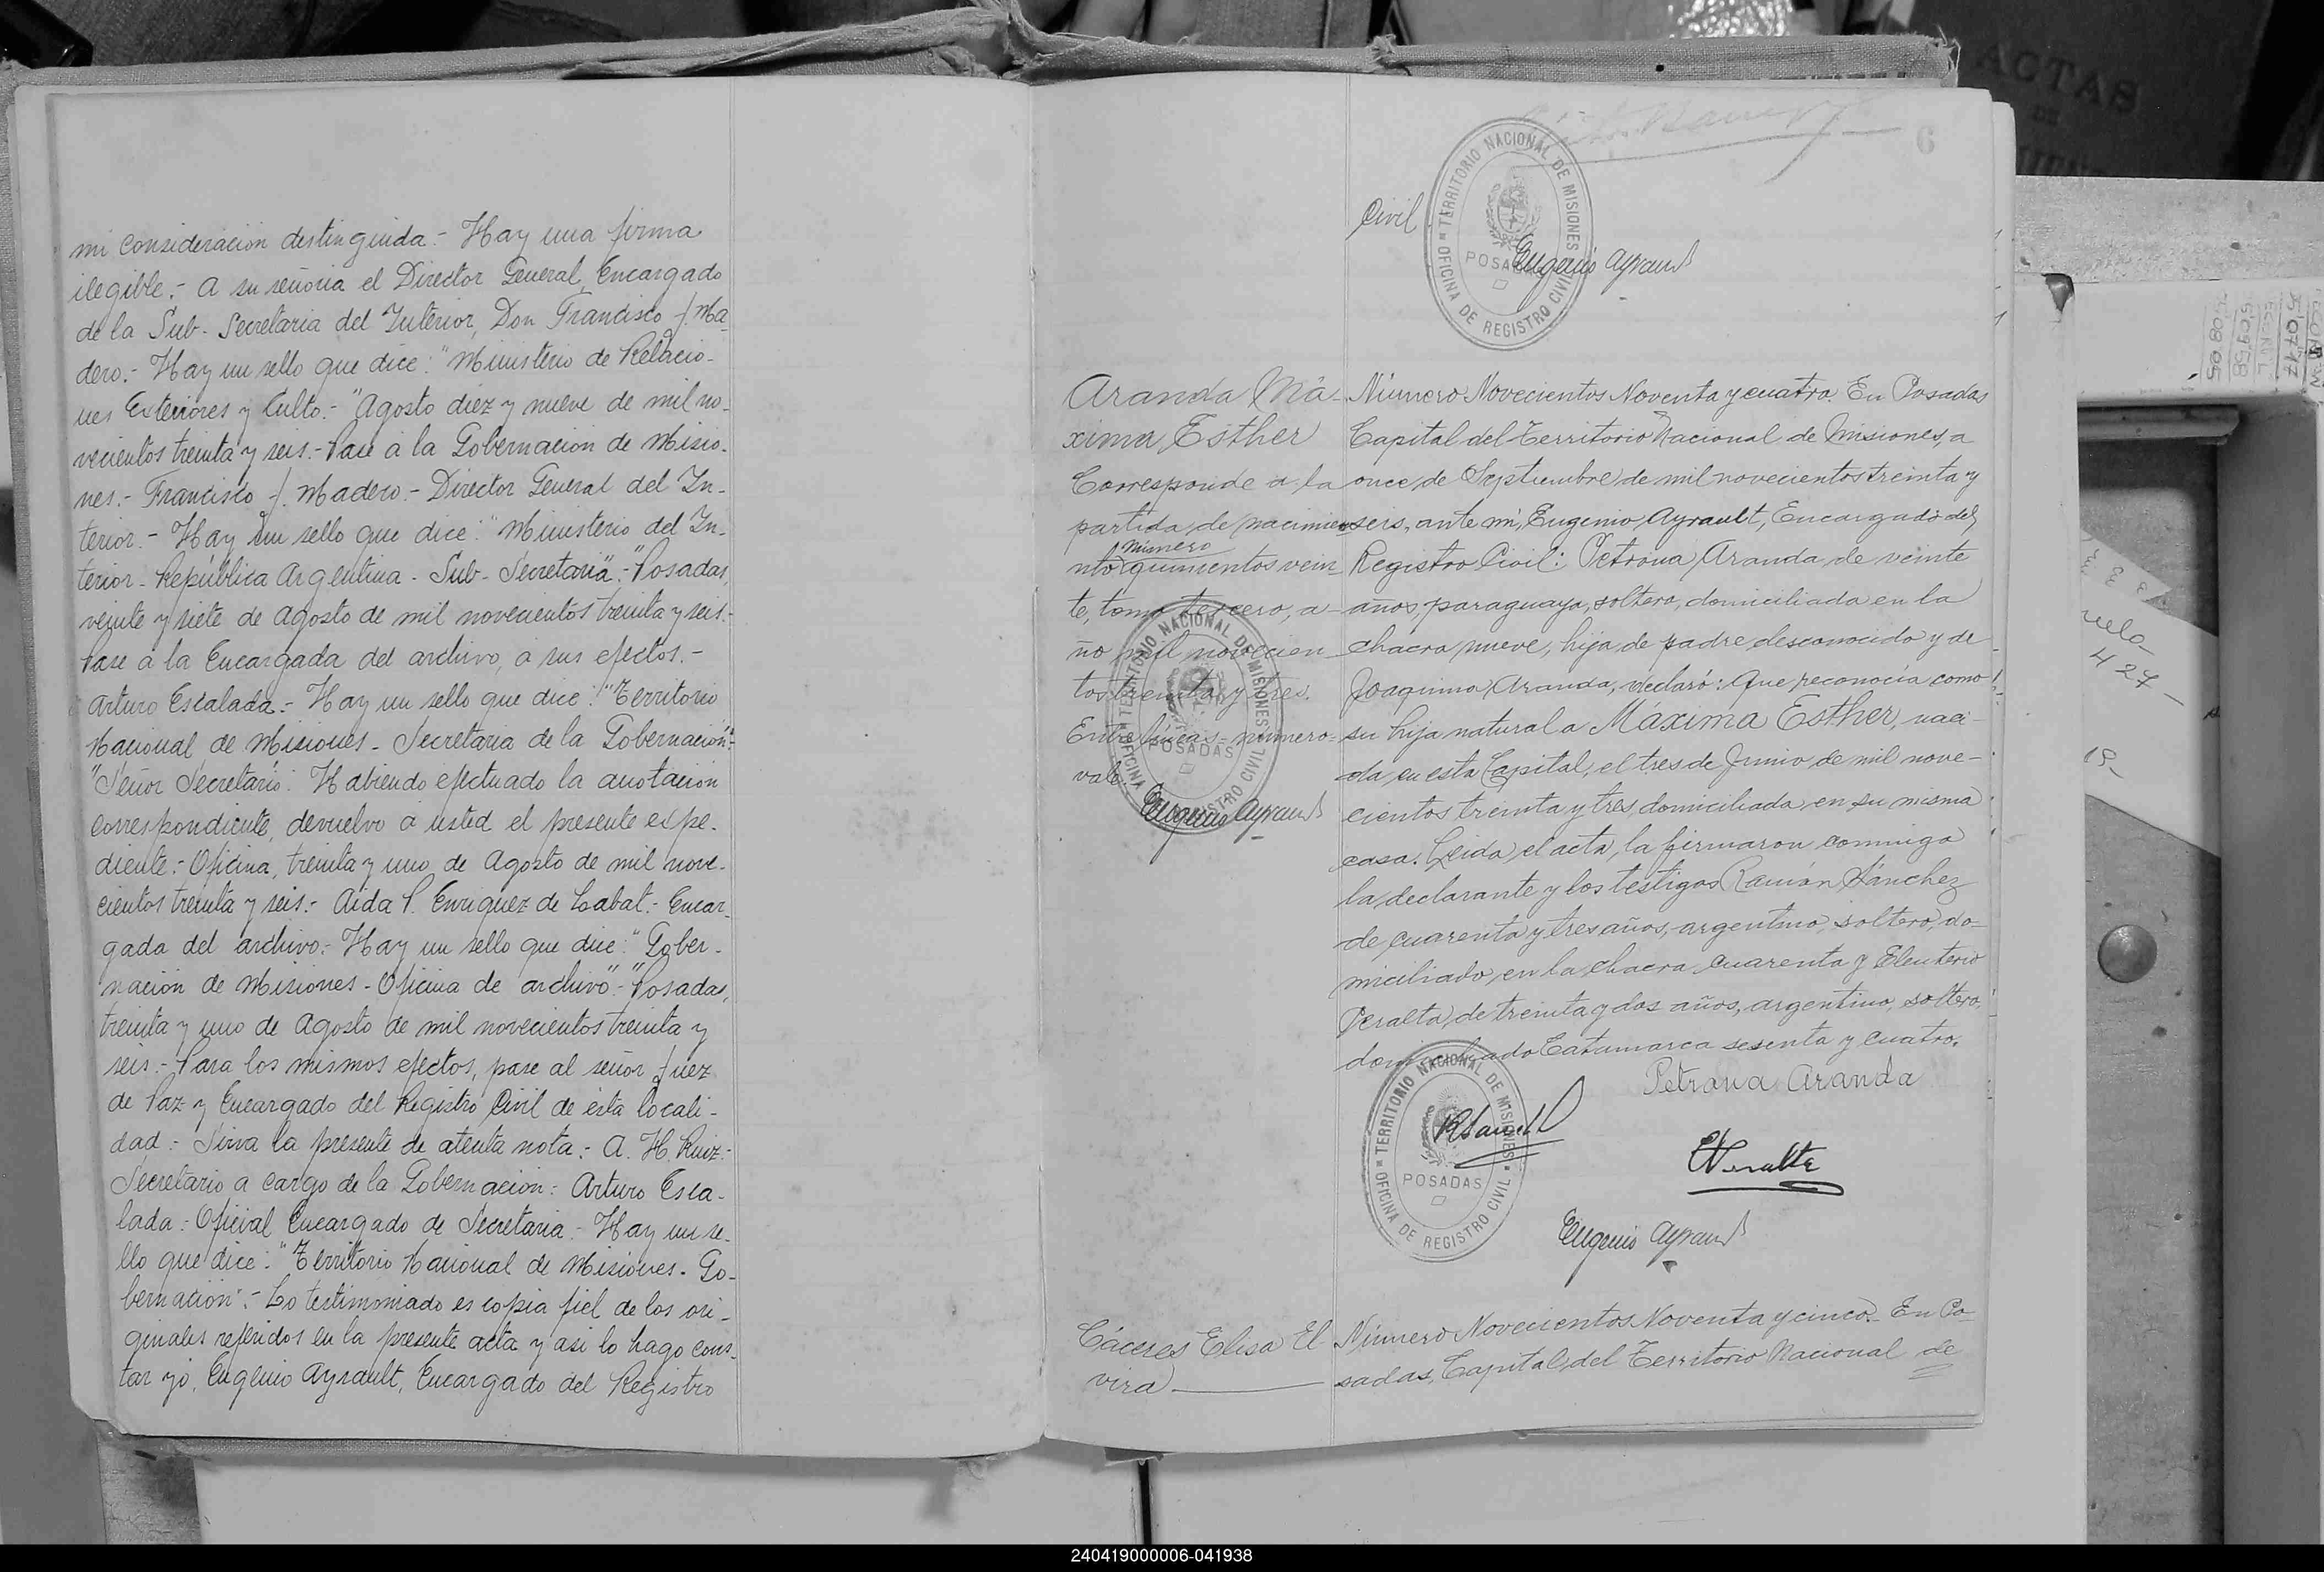 mi consideración distinguida.- Hay una firma
ilegible.- A su señoria el Director General, Encargado
de la Sub-Secretaria del Interior, Don Francisco J. Ma-
dero.- Hay un sello que dice: "Ministerio de Relacio-
nes Exteriores y Culto.- "Agosto diez y nueve de mil no-
vecientos treinta y seis.- Pase a la Gobernación de Misio-
nes.- Francisco J. Madero.- Director General del In-
terior.- Hay un sello que dice: "Ministerio del In-
terior- República Argentina- Sub-Secretaria".- "Posadas,
veinte y siete de Agosto de mil novecientos treinta y seis.-
Pase a la Encargada del archivo, a sus efectos.-
Arturo Escalada.- Hay un sello que dice: "Territorio
Nacional de Misiones- Secretaria de la Gobernación".-
"Señor Secretario: Habiendo efectuado la anotación
correspondiente, devuelvo a usted el presente expe-
diente.- Oficina, treinta y uno de Agosto de mil nove-
cientos treinta y seis.- Aida P. Enriquez de Labat.- Encar-
gada del archivo.- Hay un sello que dice: "Gober-
nación de Misiones- Oficina de archivo".- "Posadas,
treinta y uno de Agosto de mil novecientos treinta y
seis.- Para los mismos efectos, pase al señor Juez
de Paz y Encargado del Registro Civil de esta locali-
dad.- Sirva la presente de atenta nota.- A. H. Ruiz.-
Secretario a cargo de la Gobernación.- Arturo Esca-
lada.- Oficial Encargado de Secretaria.- Hay un se-
llo que dice: "Territorio Nacional de Misiones- Go-
bernación".- Lo testimoniado es copia fiel de los ori-
ginales referidos en la presente acta y asi lo hago cons-
tar yó, Eugenio Ayrault, Encargado del Registro
6
Civil
TERRITORIO NACIONAL DE MISIONES
POSADAS
OFICINA DE REGISTRO CIVIL
Eugenio Ayrault
Aranda Má-
xima Esther
Corresponde a la
partida de nacimie-
número
nto quinientos vein-
te, tomo tercero, a-
ño mil novecien-
tos treinta y tres.
Entre líneas- número-
vale.
TERRITORIO NACIONAL DE MISIONES
POSADAS
OFICINA DE REGISTRO CIVIL
Eugenio Ayrault
Número Novecientos Noventa y cuatro. En Posadas
Capital del Territorio Nacional de Misiones, a
once de Septiembre de mil novecientos treinta y
seis, ante mí, Eugenio Ayrault, Encargado del
Registro Civil: Petrona Aranda de veinte
años, paraguaya, soltera, domiciliada en la
chacra nueve, hija de padre desconocido y de
Joaquina Aranda, declaró: Que reconocía como
su hija natural a Máxima Esther, naci-
da en esta Capital, el tres de Junio de mil nove-
cientos treinta y tres, domiciliada en su misma
casa. Leida el acta, la firmaron conmigo
la declarante y los testigos Ramón Sánchez
de cuarenta y tres años, argentino, soltero, do-
miciliado en la chacra cuarenta y Eleuterio
Peralta, de treinta y dos años, argentino, soltero,
domiciliado Catamarca sesenta y cuatro.
Petrona Aranda
TERRITORIO NACIONAL DE MISIONES
POSADAS
OFICINA DE REGISTRO CIVIL
EPeralta
Eugenio Ayrault
Cáceres Elisa El-
vira
Número Novecientos Noventa y cinco. En Po-
sadas, Capital del Territorio Nacional de
ACTAS
DE
427
19-
240419000006-041938